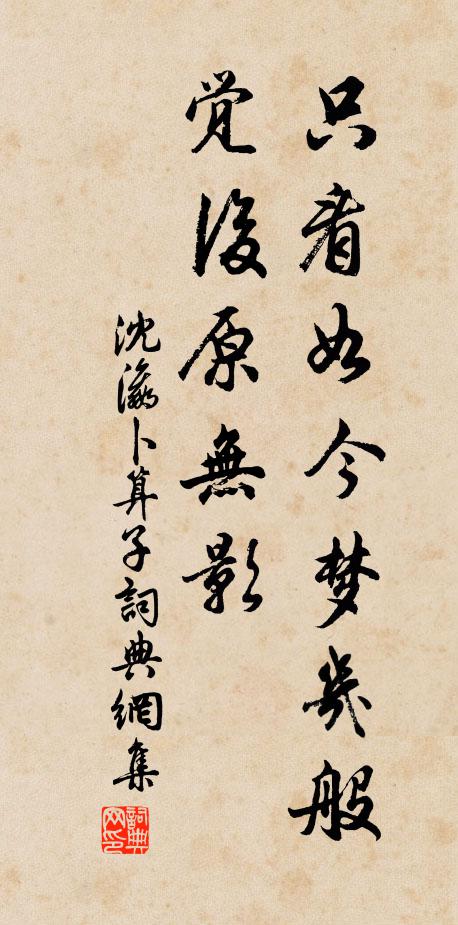 只看如今梦幾般
觉後原無影
沈瀛卜算子詞典網集
詞典网印